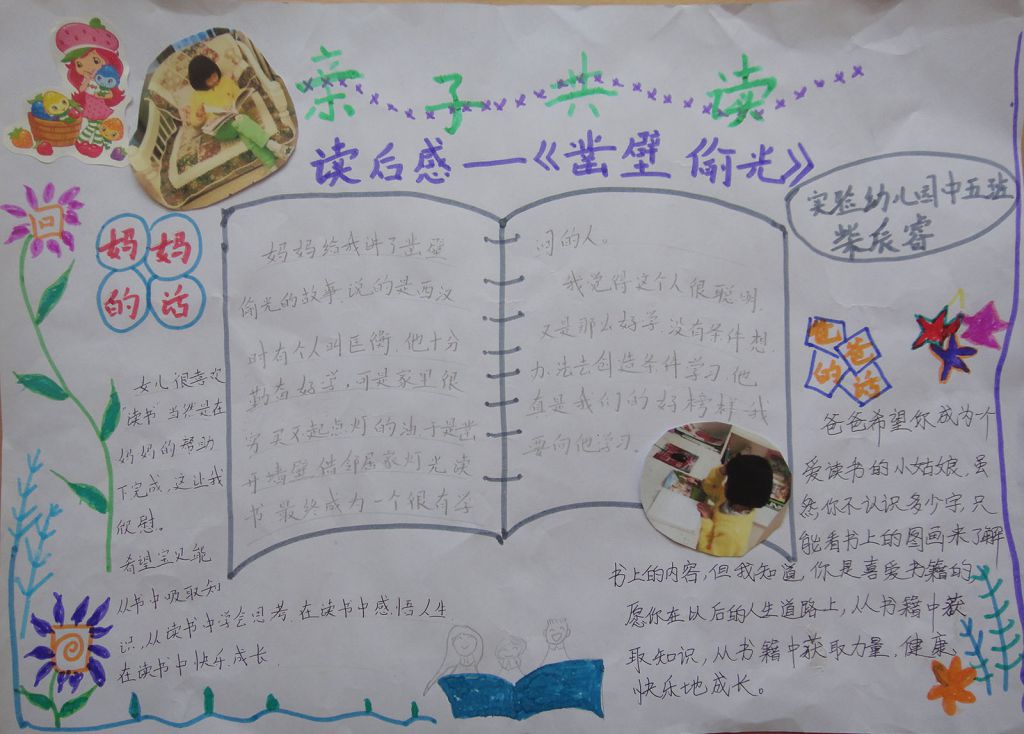 亲子共读
读后感——《凿壁偷光》
实验幼儿园中五班
柴辰睿
妈妈
的话
女儿很喜欢
“读书”当然是在
妈妈的帮助
下完成,这让我
欣慰。
希望宝贝能
从书中吸取知
识,从读书中学会思考.在读书中感悟人生
在读书中快乐成长.
妈妈给我讲了凿壁
偷光的故事.说的是西汉
时有个人叫匡衡.他十分
勤奋好学,可是家里很
穷买不起点灯的油.于是凿
开墙壁借邻居家灯光读
书最终成为一个很有学
问的人。
我觉得这个人很聪明.
又是那么好学.没有条件想
办法去创造条件学习.他
真是我们的好榜样.我
要向他学习.
爸爸
的话
爸爸希望你成为个
爱读书的小姑娘.虽
然你不认识多少字.只
能看书上的图画来了解
书上的内容,但我知道你是喜爱书籍的
愿你在以后的人生道路上,从书籍中获
取知识,从书籍中获取力量,健康、
快乐地成长。